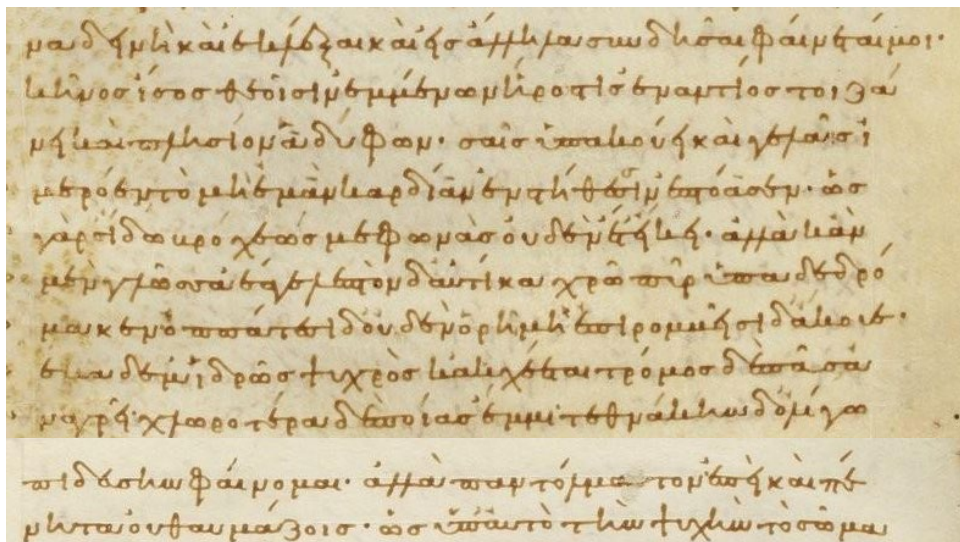 να δεινὴ καὶ ἐκλέξαι καὶ εἰς ἄλληλα συνδῆσαι φαίνεταί μοι·
κῆνος ἴσος θεοῖσιν ἔμμεν ὠνὴρ ὅτις ἐναντίος τοι ζά
νει καὶ πλησίον ἀδύ φων· σαῖς ὑπακούει καὶ γελᾶις ἱ
μερόεν τὸ μὴ ἐμὰν καρδίαν ἐν στήθεσιν ἐπτόασεν· ὡς
γὰρ σίδω βρόχεώς με φωνὰς οὐδὲν ἔτ' εἴκει· ἀλλὰ κὰν
μὲν γλῶσσα ἔαγε λεπτὸν δ' αὐτίκα χρῶ πῦρ ὑπαδεδρό
μακεν ὀππάτεσι δ' οὐδὲν ὄρημμὴ ἐπιρομβεῖσι δ' ἄκουε·
ἔκαδε μ' ἱδρὼς ψυχρὸς κακχέεται τρόμος δὲ πᾶσα
ν ἀγρεῖ· χλωροτέρα δὲ ποίας ἔμμι τεθνάκην δ' ὀλίγω
πιδεύσην φαίνομαι· ἀλλὰ πᾶν τόλμα τον ἐπεὶ καὶ πέ
νητα οὐ θαυμάζοις· ὡς ὑπ' αὐτὸ τὴν ψυχὴν τὸ σῶμα